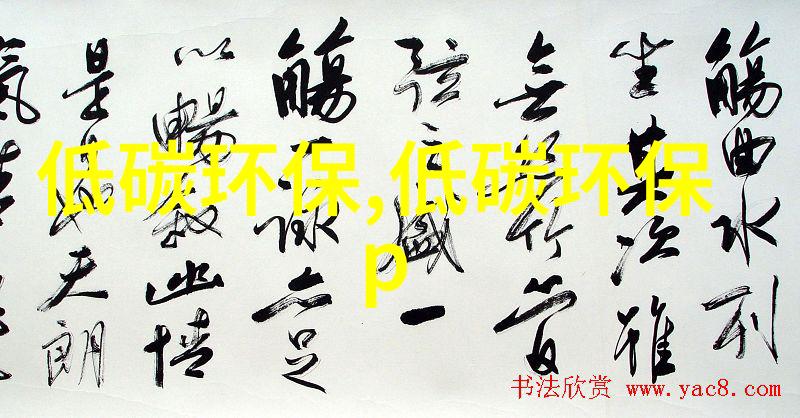 觴曲水列
坐其次雖
無絲竹管
弦之盛一
觴一詠亦足
以暢敘幽情
是日也天朗
氣清
低碳环保,低碳环保
p
书法欣赏 www.yac8.com